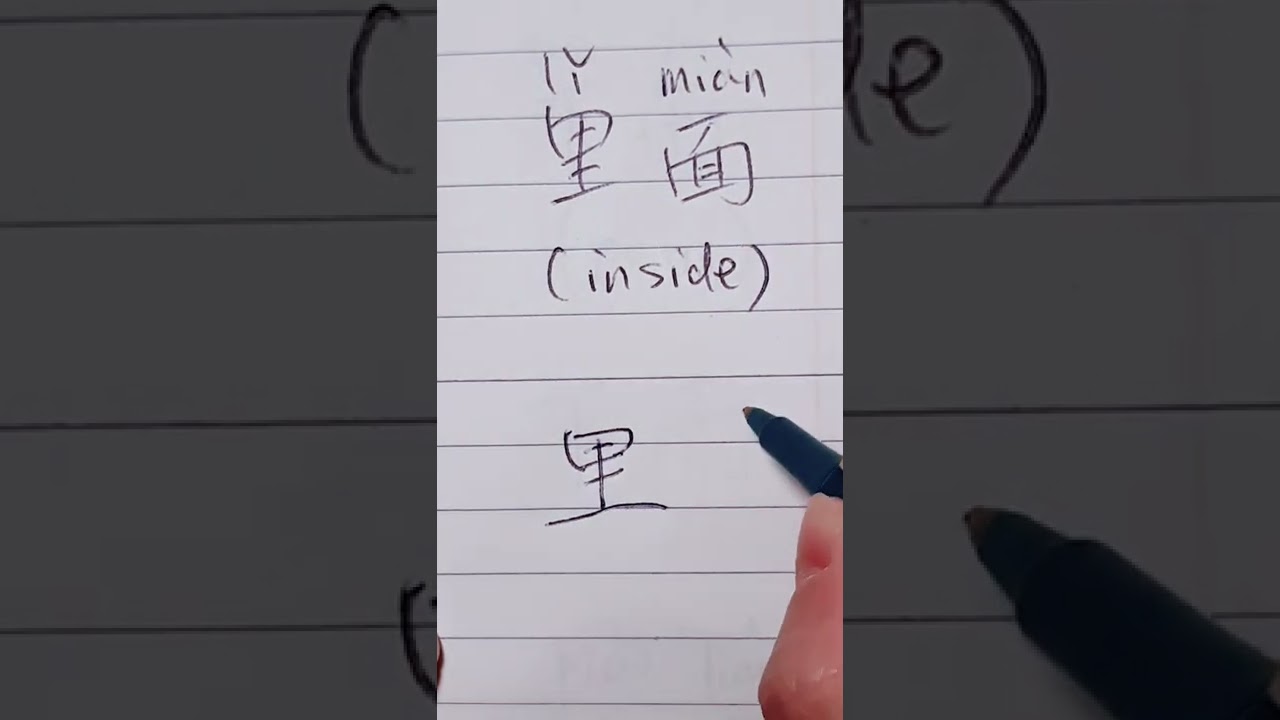 lǐ miàn
里面
(inside)
里